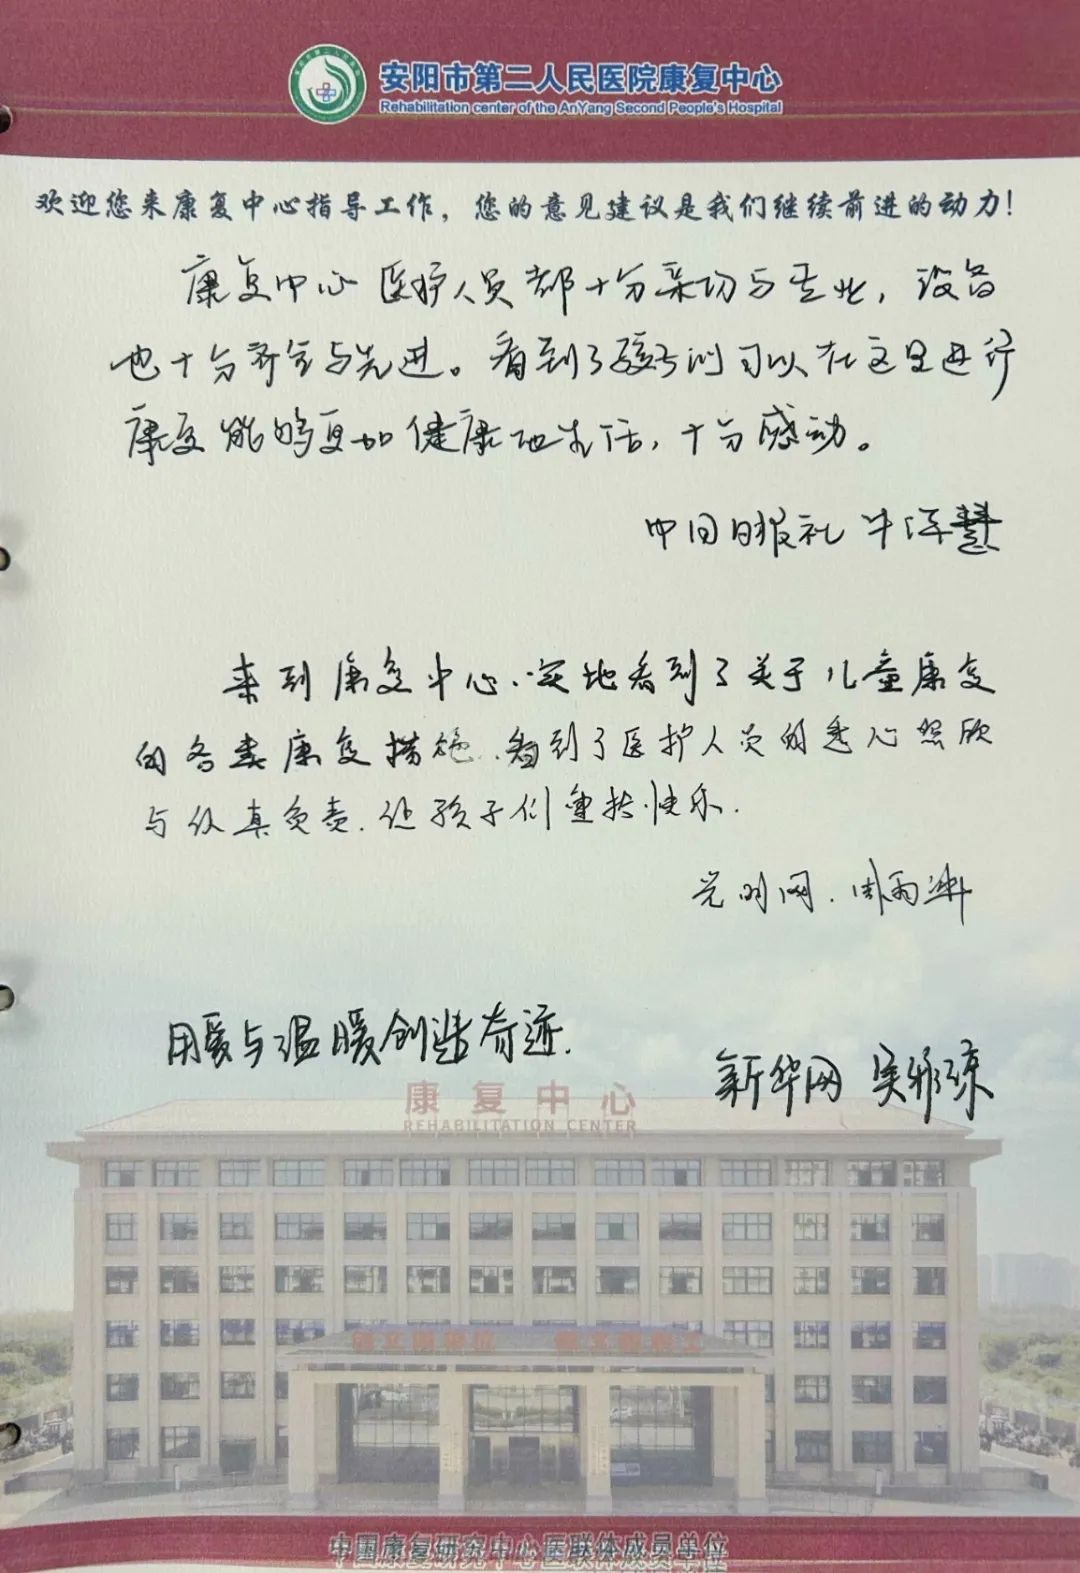 安阳市第二人民医院康复中心
Rehabilitation center of the AnYang Second People's Hospital
欢迎您来康复中心指导工作，您的意见建议是我们继续前进的动力！
康复中心医护人员都十分亲切与专业，设备
也十分齐全与先进。看到了孩子们可以在这里进行
康复能够更加健康地生活，十分感动。
中国日报社 牛泽慧
来到康复中心，实地看到了关于儿童康复
的各类康复措施，看到了医护人员的悉心照顾
与认真负责，让孩子们重拾快乐。
光明网．周雨
用爱与温暖创造奇迹．
新华网 吴雅琼
康复中心
REHABILITATION CENTER
中国康复研究中心医联体成员单位